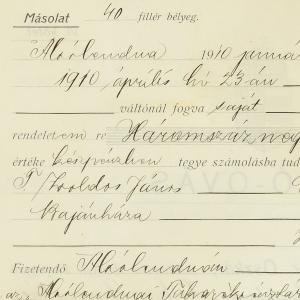 Másolat 40 fillér bélyeg.
Alsólendva 1910 január
1910 április hó 23-án
váltónál fogva saját
rendeletem re Háromszáz
értéke készpénzben tegye számolásba tud
Zsoldos János
Kajánháza
Fizetendő Alsólendván
Alsólendvai Takarékpénztár